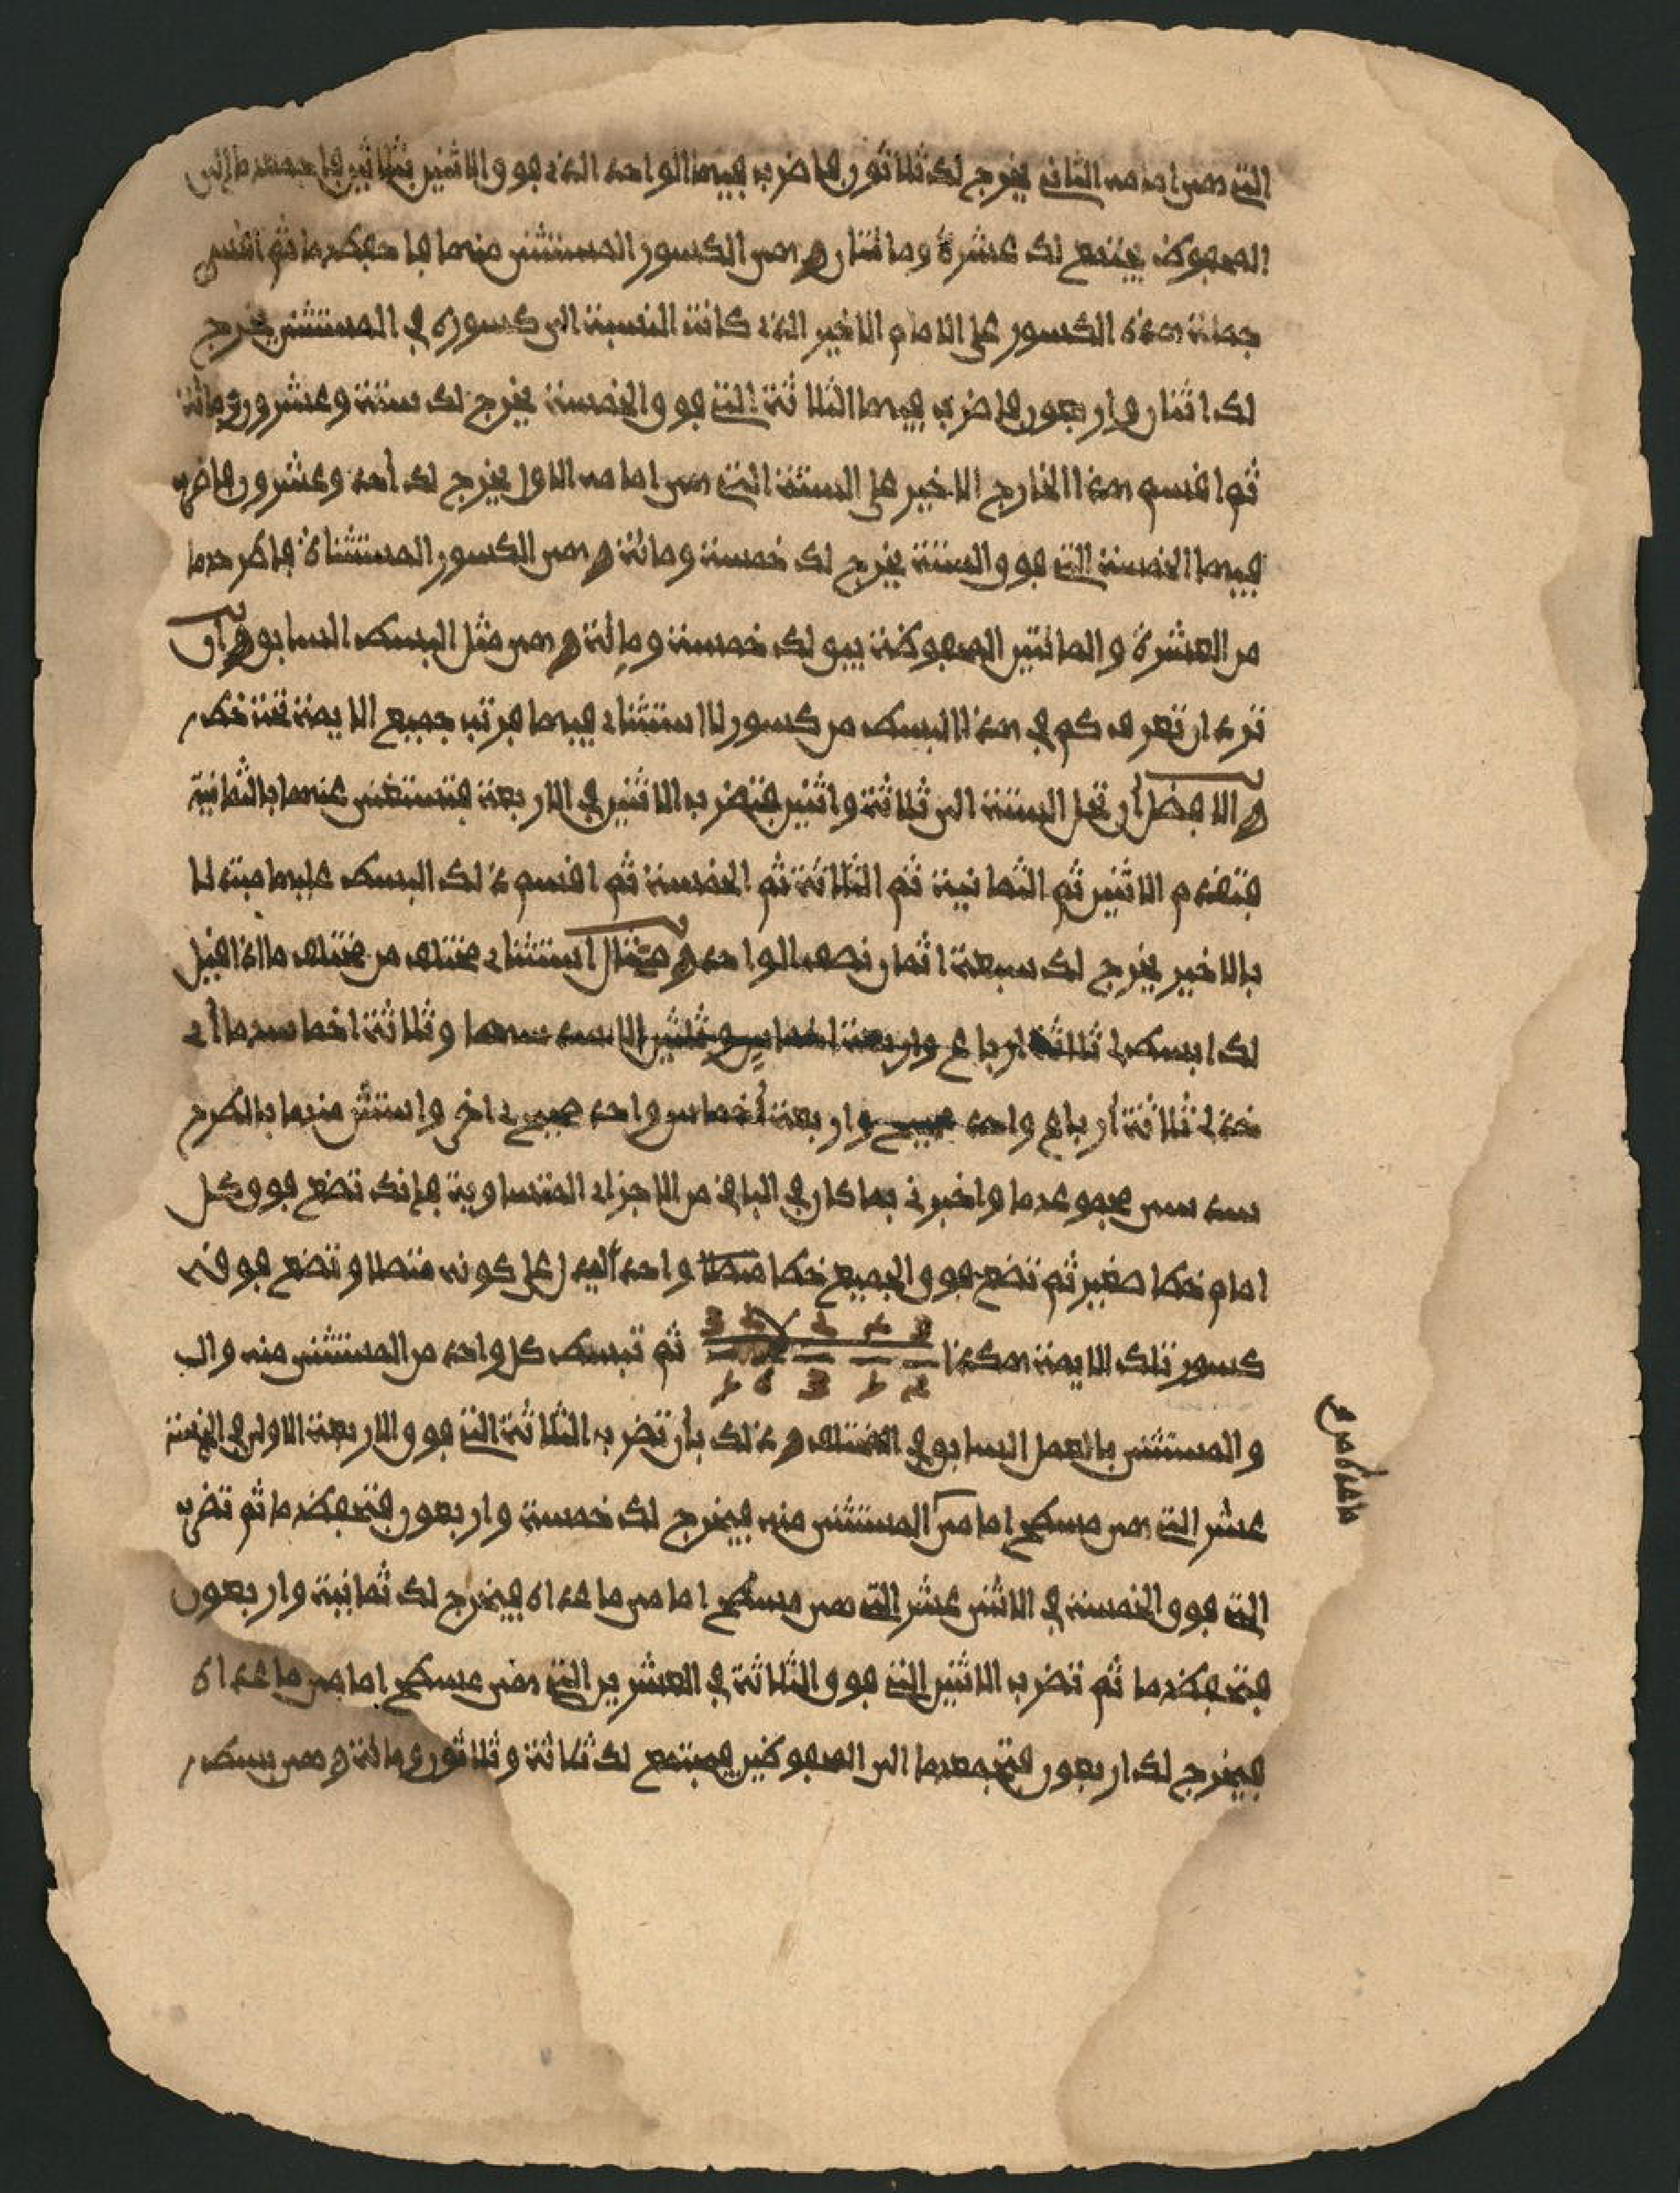 التي هي امامه الثاني يخرج لك ثلاثون فاضرب فيها الواحد الذي فوق الاثنين بثلاثين فاجمعها الى
المحفوظ يجتمع لك عشرة ومائتان وهي الكسور المستثنى منها فاحفظها ثم اقسم
جملة هذه الكسور على الامام الاخير الذي كانت النسبة الى كسوره في المستثنى يخرج
لك اثنان واربعون فاضرب فيها الثلاثة التي فوق الخمسة يخرج لك ستة وعشرون ومائة
ثم اقسم هذا الخارج الاخير على الستة التي هي امامه الاول يخرج لك أحد وعشرون فاضرب
فيها الخمسة التي فوق الستة يخرج لك خمسة ومائة وهي الكسور المستثناة فاطرحها
من العشرة والمائتين المحفوظة يبق لك خمسة ومائة وهي مثل البسط السابق وان
ترد ان تعرف كم في هذا البسط من كسور لا استثناء فيها فرتب جميع الايمة تحت خط
والافضل أن تحل الستة الى ثلاثة واثنين فتضرب الاثنين في الاربعة فتستغني عنها بالثمانية
فتقدم الاثنين ثم الثمانية ثم الثلاثة ثم الخمسة ثم اقسم ذلك البسط عليها مبتدئا
بالاخير يخرج لك سبعة اثمان نصف الواحد ومثال استثناء مختلف من مختلف ما اذا قيل
لك ابسط لي ثلاثة ارباع واربعة اخماس وثلثين الا سدسها وثلاثة اخماسها أي
خذ لي ثلاثة أرباع واحد صحيح واربعة أخماس واحد صحيح اخر واستثن منها بالطرح
سدسي مجموعها واخبرني بما كان في الباقي من الاجزاء المتساوية فإنك تضع فوق كل
امام خطا صغير ثم تضع فوق الجميع خطا متصلا واحدا ليدل على كونه متصلا وتضع فوقه
كسور تلك الايمة هكذا ثم تبسط كل واحد من المستثنى منه وال
والمستثنى بالعمل السابق في المختلف وذلك بأن تضرب الثلاثة التي فوق الاربعة الاولى في الخمسة
عشر التي هي مسطح امامي المستثنى منه فيخرج لك خمسة واربعون فتحفظها ثم تضرب
التي فوق الخمسة في الاثني عشر التي هي مسطح امامي ما عداه فيخرج لك ثمانية واربعون
فتحفظها ثم تضرب الاثنين التي فوق الثلاثة في العشرين التي هي مسطح امامي ما عداه
فيخرج لك اربعون فتجمعها الى المحفوظين فيجتمع لك ثلاثة وثلاثون ومائة وهي بسط